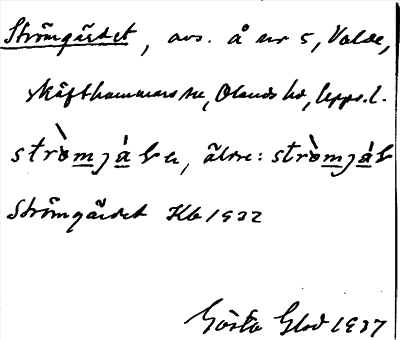 Strömgärdet, avs. å nr 5, Valde,
Skäfthammars sn, Olands hd, Upps. l.
äldre:
Strömgärdet Kb 1932
Gösta Glod 1937